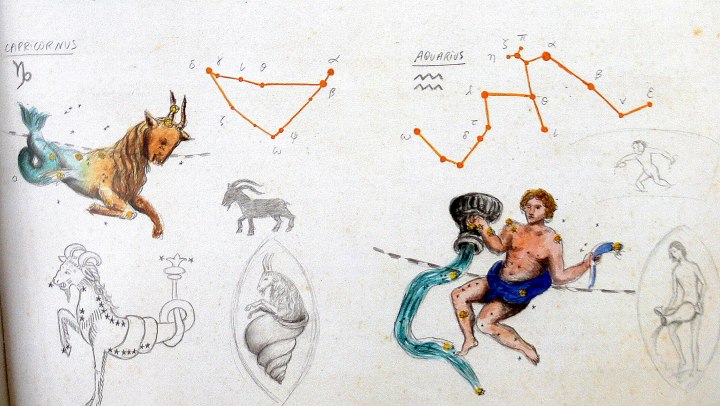 CAPRICORNUS
♑
δ γ ι θ α
β
ζ
ψ
ω
AQUARIUS
♒
π
ζ
η
α
β
λ
θ
ν
ε
τ
δ
ω
ι